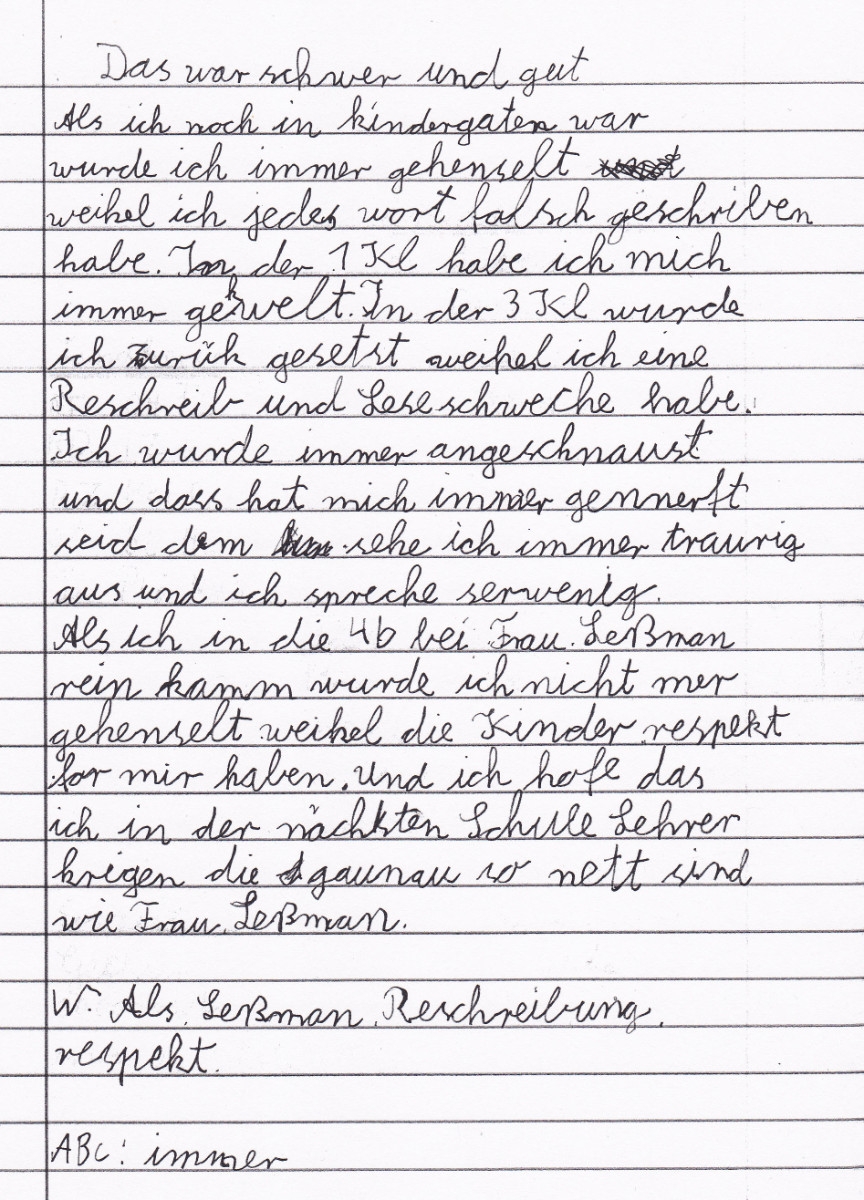 Das war schwer und gut
Als ich noch in kindergaten war
wurde ich immer gehenselt
weihel ich jedes wort falsch geschriben
habe. In der 1 Kl habe ich mich
immer gekwelt. In der 3 Kl wurde
ich zurük gesetst weihel ich eine
Reschreib und Leseschweche habe.
Ich wurde immer angeschnaust
und dass hat mich immer gennerft
seid dem sehe ich immer traurig
aus und ich spreche serwenig.
Als ich in die 4b bei Frau Leßman
rein kamm wurde ich nicht mer
gehenselt weihel die Kinder respekt
for mir haben. Und ich hofe das
ich in der nächkten Schule Lehrer
krigen die gaunau so nett sind
wie Frau Leßman.
W. Als, Leßman, Reschreibung,
respekt.
ABC: immer